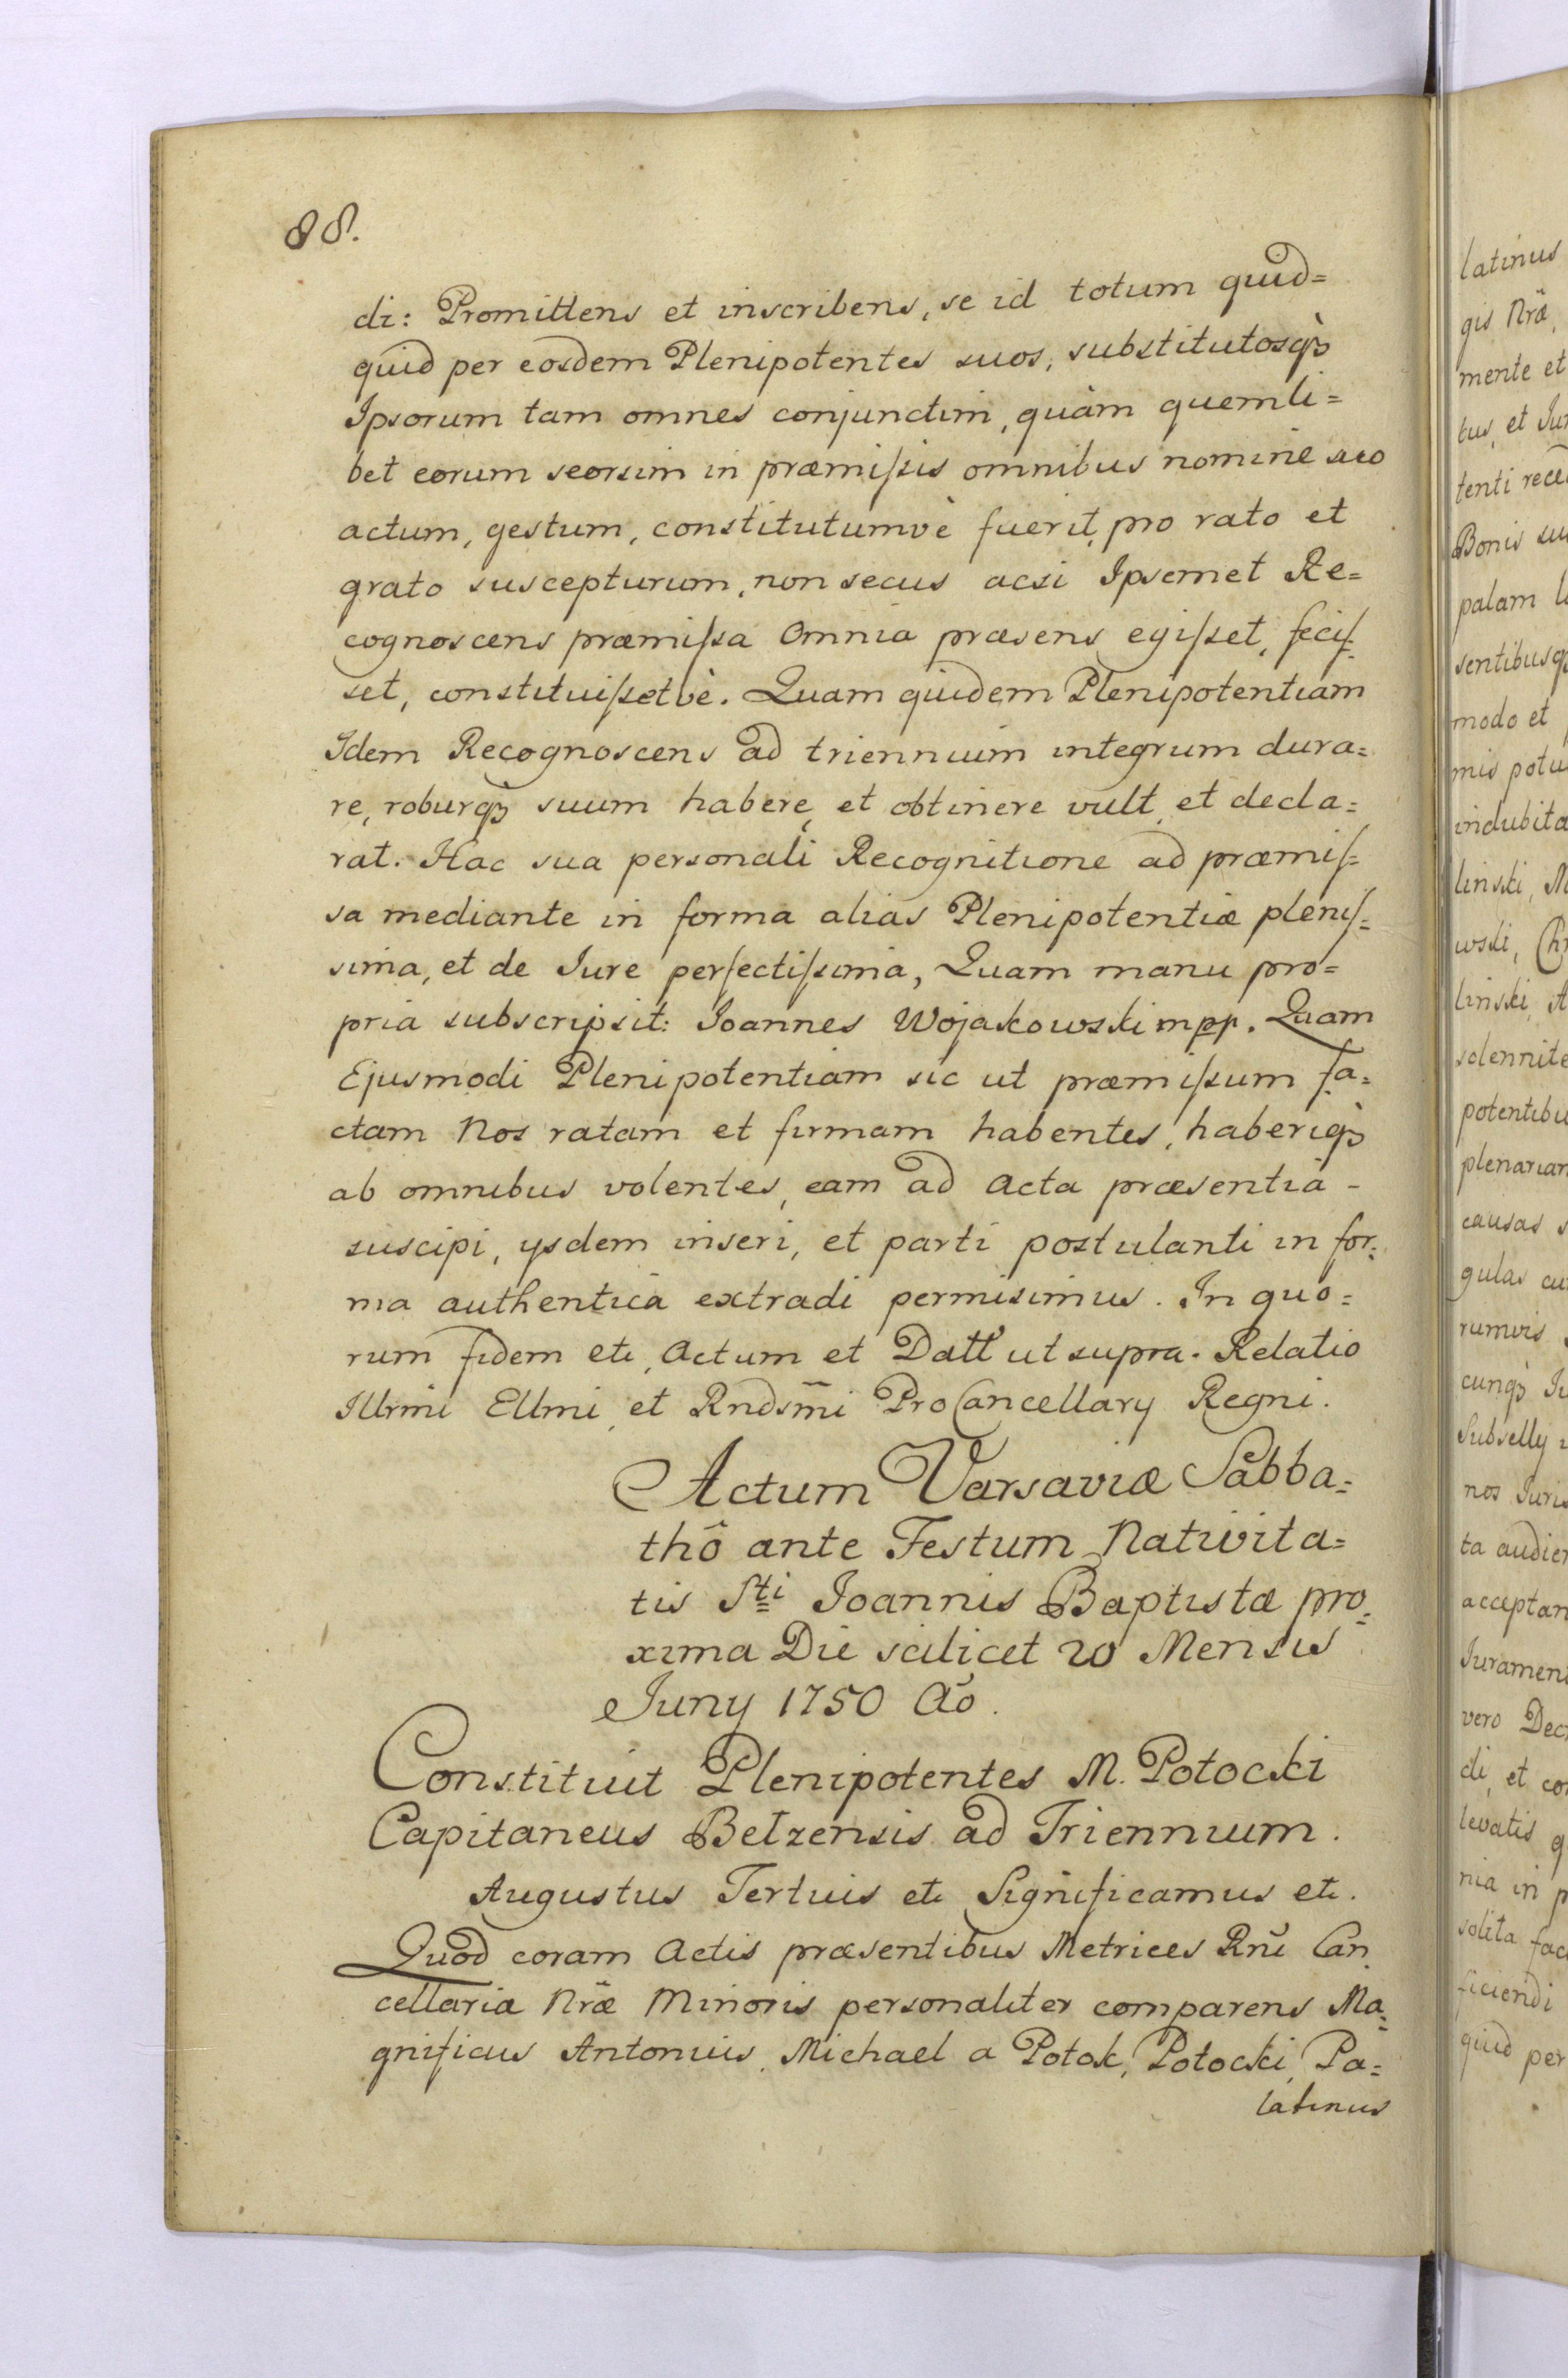 88.
di: Promittens et inscribens, se id totum quid=
quid per eosdem Plenipotentes suos, substitutosq̀ꝫ
Ipsorum tam omnes conjunctim, quàm quemli=
bet eorum seorsim in præmiſsis omnibus nomine suo
actum, gestum, constitutumvè fuerit, pro rato et
grato suscepturum, non secus acsi Ipsemet Re=
cognoscens præmiſsa Omnia præsens egiſset, feciſ=
set, constituiſsetvè. Quam quidem Plenipotentiam
Idem Recognoscens ad triennium integrum dura=
re, roburqꝫ suum habere, et obtinere vult, et decla=
rat. Hac sua personali Recognitione ad præmiſ=
sa mediante in forma alias Plenipotentiæ pleniſ=
sima, et de Iure perfectiſsima, Quam manu pro=
pria subscripsit: Joannes Wojakowski mpp. Quam
Ejusmodi Plenipotentiam sic ut præmiſsum fa=
ctam Nos ratam et firmam habentes, haberiq̀ꝫ
ab omnibus volentes, eam ad Acta præsentia -
suscipi, ysdem inseri, et parti postulanti in for=
ma authentica extradi permisimus. In quo=
rum fidem etc, Actum et Datt' ut supra. Relatio
Illrmi Ellmi, et Rndsm̄i ProCancellary Regni.
Actum Varsaviæ Sabba=
thô ante Festum Nativita=
tis Sti Joannis Baptistæ pro=
xima Die scilicet 20 Mensis
Juny 1750 Ão.
Constituit Plenipotentes M. Potocki
Capitaneus Belzensis ad Triennium.
Augustus Tertius etc Significamus etc.
Quod coram Actis præsentibus Metrices Rñi Can
cellaria Nræ̃ Minoris personaliter comparens Ma=
gnificus Antonius Michael a Potok, Potocki, Pa=
latinus
latinus
gis Nræ̃,
mente et
tus, et
tenti
Bonis
palam
sentibusqꝫ
modo et
mis
indubita
linski,
wski,
linski,
solennite
potentibu
plenarian
causas
gulas
rumvis
cunqꝫ
Subselly
nos
ta
acceptan
Jurament
vero
di, et
levatis
nia in
solita
ficiendi
quid per